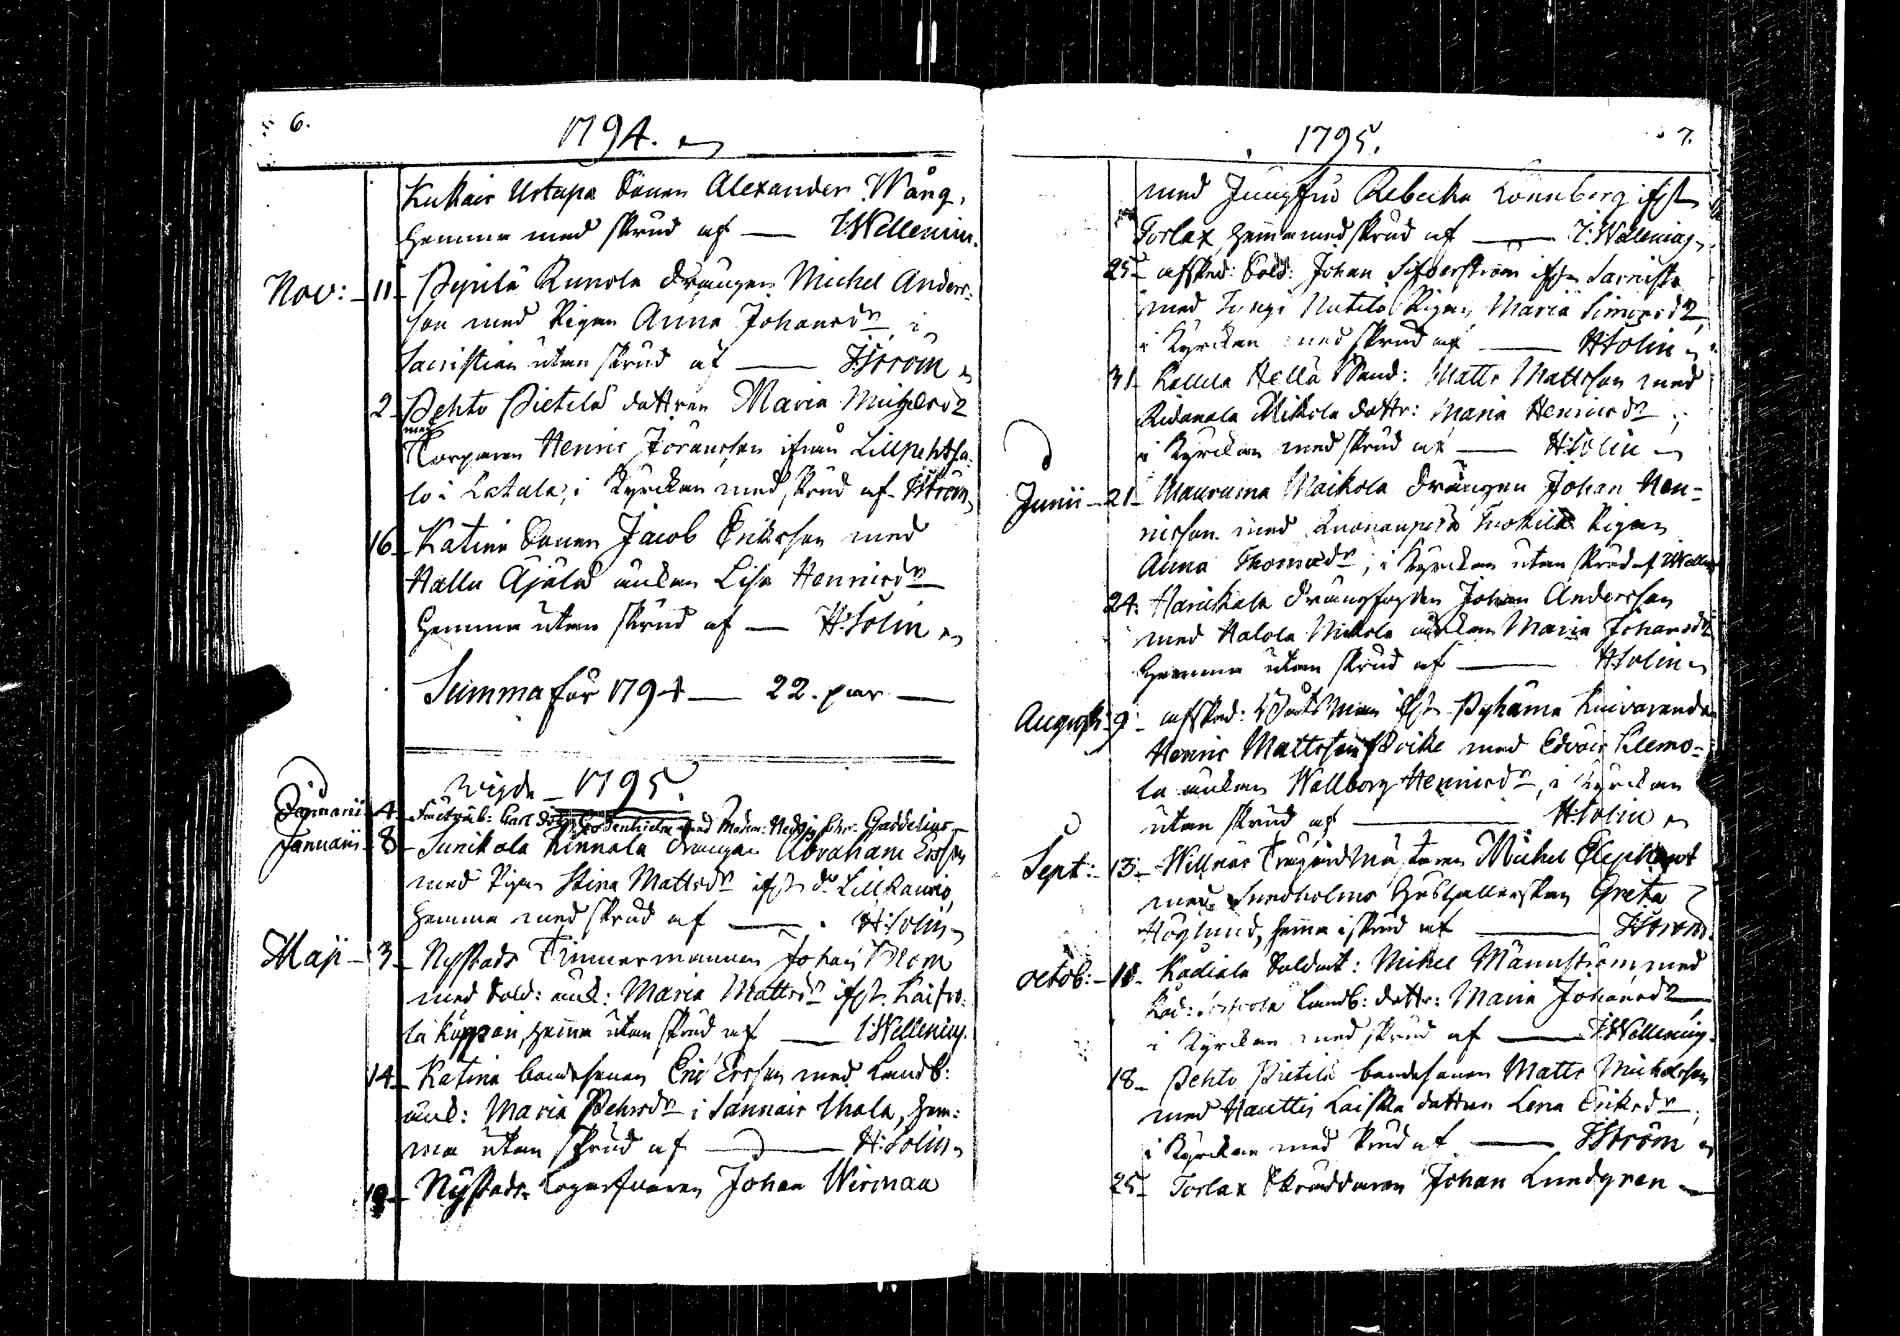 6.
1794.
Kukais Ustapa Sonen Alexander Wång,
hemma med skrud af — I:Wellenius.
Nov: 11 Pyrilä Runola drängen Michel Anders-
son med Pigan Anna Johansdr i
Sacristian utan skrud af — Ström
2 Pehto Pietilä dottren Maria Michelsdr
med
Torparen Henric Jöransson ifrån Lillpehtsa-
lo i Letala, i Kyrckan med skrud af Ström
16 Katina Sonen Jacob Eriksson med
Hallu Äjälä änkan Lisa Henricsdr
hemma utan skrud af — H:Solin
Summa för 1794 — 22. par —
Wigde 1795.
Januarii 4 Carl med Madem: Hedvig Chr: Gaddelius
Januarii 8 Sunikala Kinnala drängen Abraham Ersson
med Pigan Stina Mattsdr ifr: do Lillkauris
hemma med skrud af — H:Solin
Maji 3 Nystads Timmermannen Johan Blom
med Sold: änk: Maria Mattsdr ifr.
la Kåppari, hemma utan skrud af — I:Wellenius.
14 Katina bondesonen Eric Ersson med Landb:
änk: Maria Pehrsdr i Sannais Uhola, hem-
ma utan skrud af — H:Solin
19 Nystads Johan Wirman
1795.
7.
med Jungfru Rebecka Lönnberg ifr
Torlax hemma med skrud af — I:Wellenius
25 afsked: Sold: Johan Silfverström ifr
med Pigan Maria Simonsdr
i Kyrckan med skrud af — H:Solin
31 Kallela Hellä Bond: Matts Mattsson med
Ridanala Mikola dottr: Maria Henricsdr,
i Kyrckan med skrud af — H:Solin
Junii 21 Mauruma Maikola drängen Johan Hen-
ricsson med Pigan
Anna Thomasdr, i Kyrckan utan skrud af I:Wellen
24. Hanikala Johan Andersson
med Halola Mickola änkan Maria Johansdr
hemma utan skrud af — H:Solin
Augusti 9 afsked: Båtsman ifr Pyhäma
Henric Mattsson med Edvais Klemo-
la änkan Wallborg Henricsdr, i Kyrckan
utan skrud af — H:Solin
Sept: 13 Willnäs Trägårdsmästaren Michel Elephant
med Sundholms Hushållerskan Greta
Höglund, hemma i skrud af — Ström
Octob: 11 Kadiala Soldat: Mikel Männström med
Kad: Landb: dottr: Maria Johansdr
i Kyrckan med skrud af — I:Wellenius.
18 Pehto Pietilä bondesonen Matts Michelsson
med Hauttis Laiska dottren Lena Eriksdr,
i Kyrckan med skrud af — Ström
25 Torlax Skräddaren Johan Lundgren